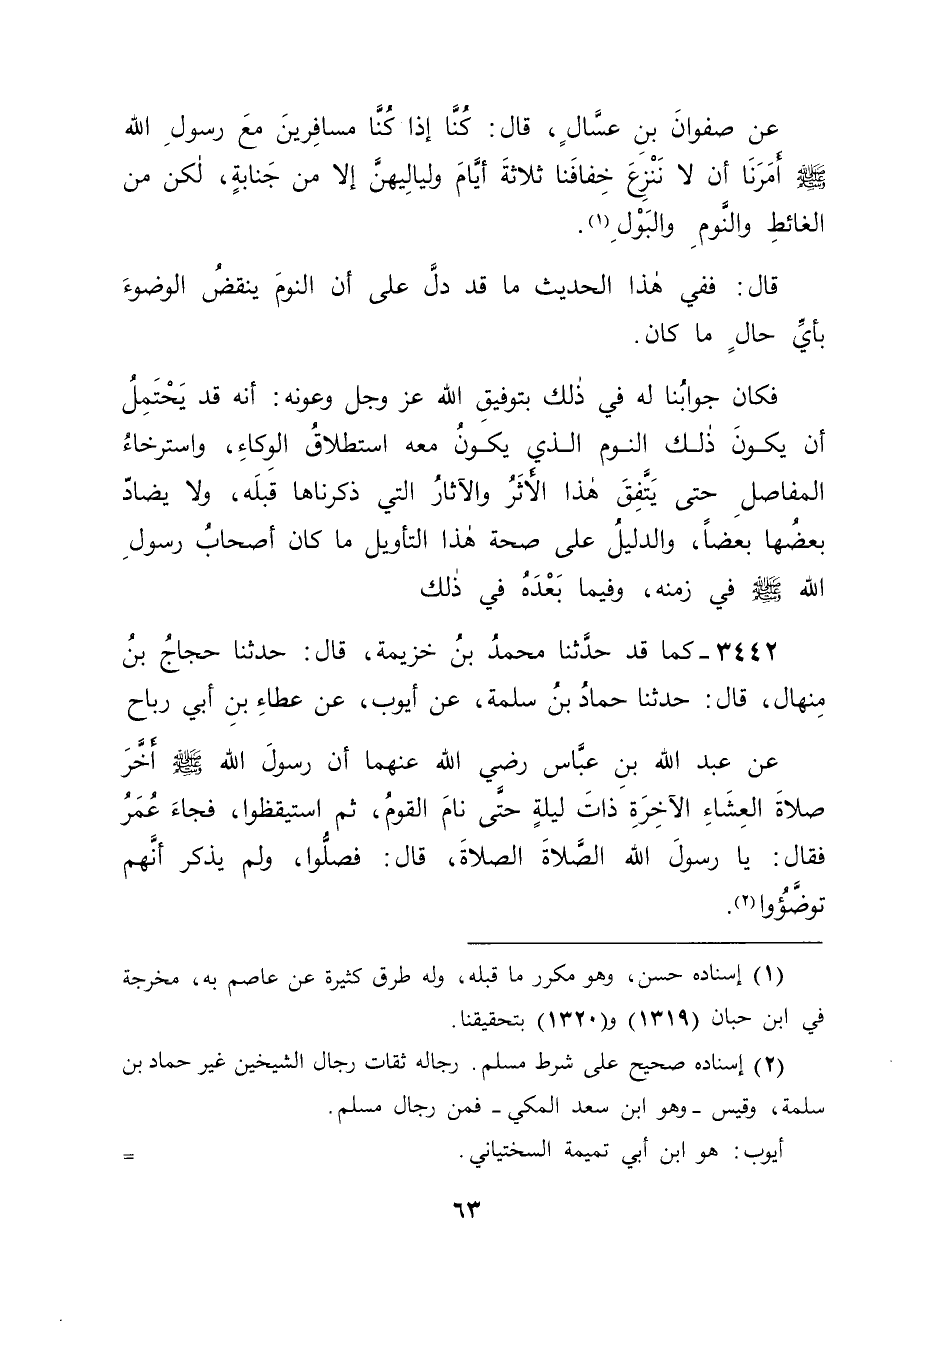 عن صفوانَ بنِ عسَّالٍ، قال: كُنَّا إذا كُنَّا مسافِرينَ معَ رسولِ الله
ﷺ أَمَرَنَا أن لا نَنْزِعَ خِفافَنا ثلاثةَ أيَّامَ وليالِيهنَّ إلا من جَنابةٍ، لٰكن من
الغائطِ والنَّومِ والبَوْلِ(١).
قال: ففي هٰذا الحديث ما قد دلَّ على أن النومَ ينقضُ الوضوءَ
بأيِّ حالٍ ما كان.
فكان جوابُنا له في ذٰلك بتوفيقِ الله عز وجل وعونه: أنه قد يَحْتَمِلُ
أن يكونَ ذٰلك النوم الذي يكونُ معه استطلاقُ الوِكاءِ، واسترخاءُ
المفاصلِ حتى يَتَّفِقَ هٰذا الأَثَرُ والآثارُ التي ذكرناها قبلَه، ولا يضادّ
بعضُها بعضاً، والدليلُ على صحة هٰذا التأويل ما كان أصحابُ رسولِ
الله ﷺ في زمنه، وفيما بَعْدَهُ في ذٰلك
٣٤٤٢ـ كما قد حدَّثنا محمدُ بنُ خزيمة، قال: حدثنا حجاجُ بنُ
مِنهال، قال: حدثنا حمادُ بنُ سلمة، عن أيوب، عن عطاءِ بنِ أبي رباح
عن عبد الله بنِ عبَّاس رضي الله عنهما أن رسولَ الله ﷺ أَخَّرَ
صلاةَ العِشَاءِ الآخِرَةِ ذاتَ ليلةٍ حتَّى نامَ القومُ، ثم استيقظوا، فجاءَ عُمَرُ
فقال: يا رسولَ الله الصَّلاةَ الصلاةَ، قال: فصلُّوا، ولم يذكر أنَّهم
توضَّؤُوا(٢).
(١) إسناده حسن، وهو مكرر ما قبله، وله طرق كثيرة عن عاصم به، مخرجة
في ابن حبان (١٣١٩) و(١٣٢٠) بتحقيقنا.
(٢) إسناده صحيح على شرط مسلم. رجاله ثقات رجال الشيخين غير حماد بن
سلمة، وقيس ـ وهو ابن سعد المكي ـ فمن رجال مسلم.
أيوب: هو ابن أبي تميمة السختياني. =
٦٣